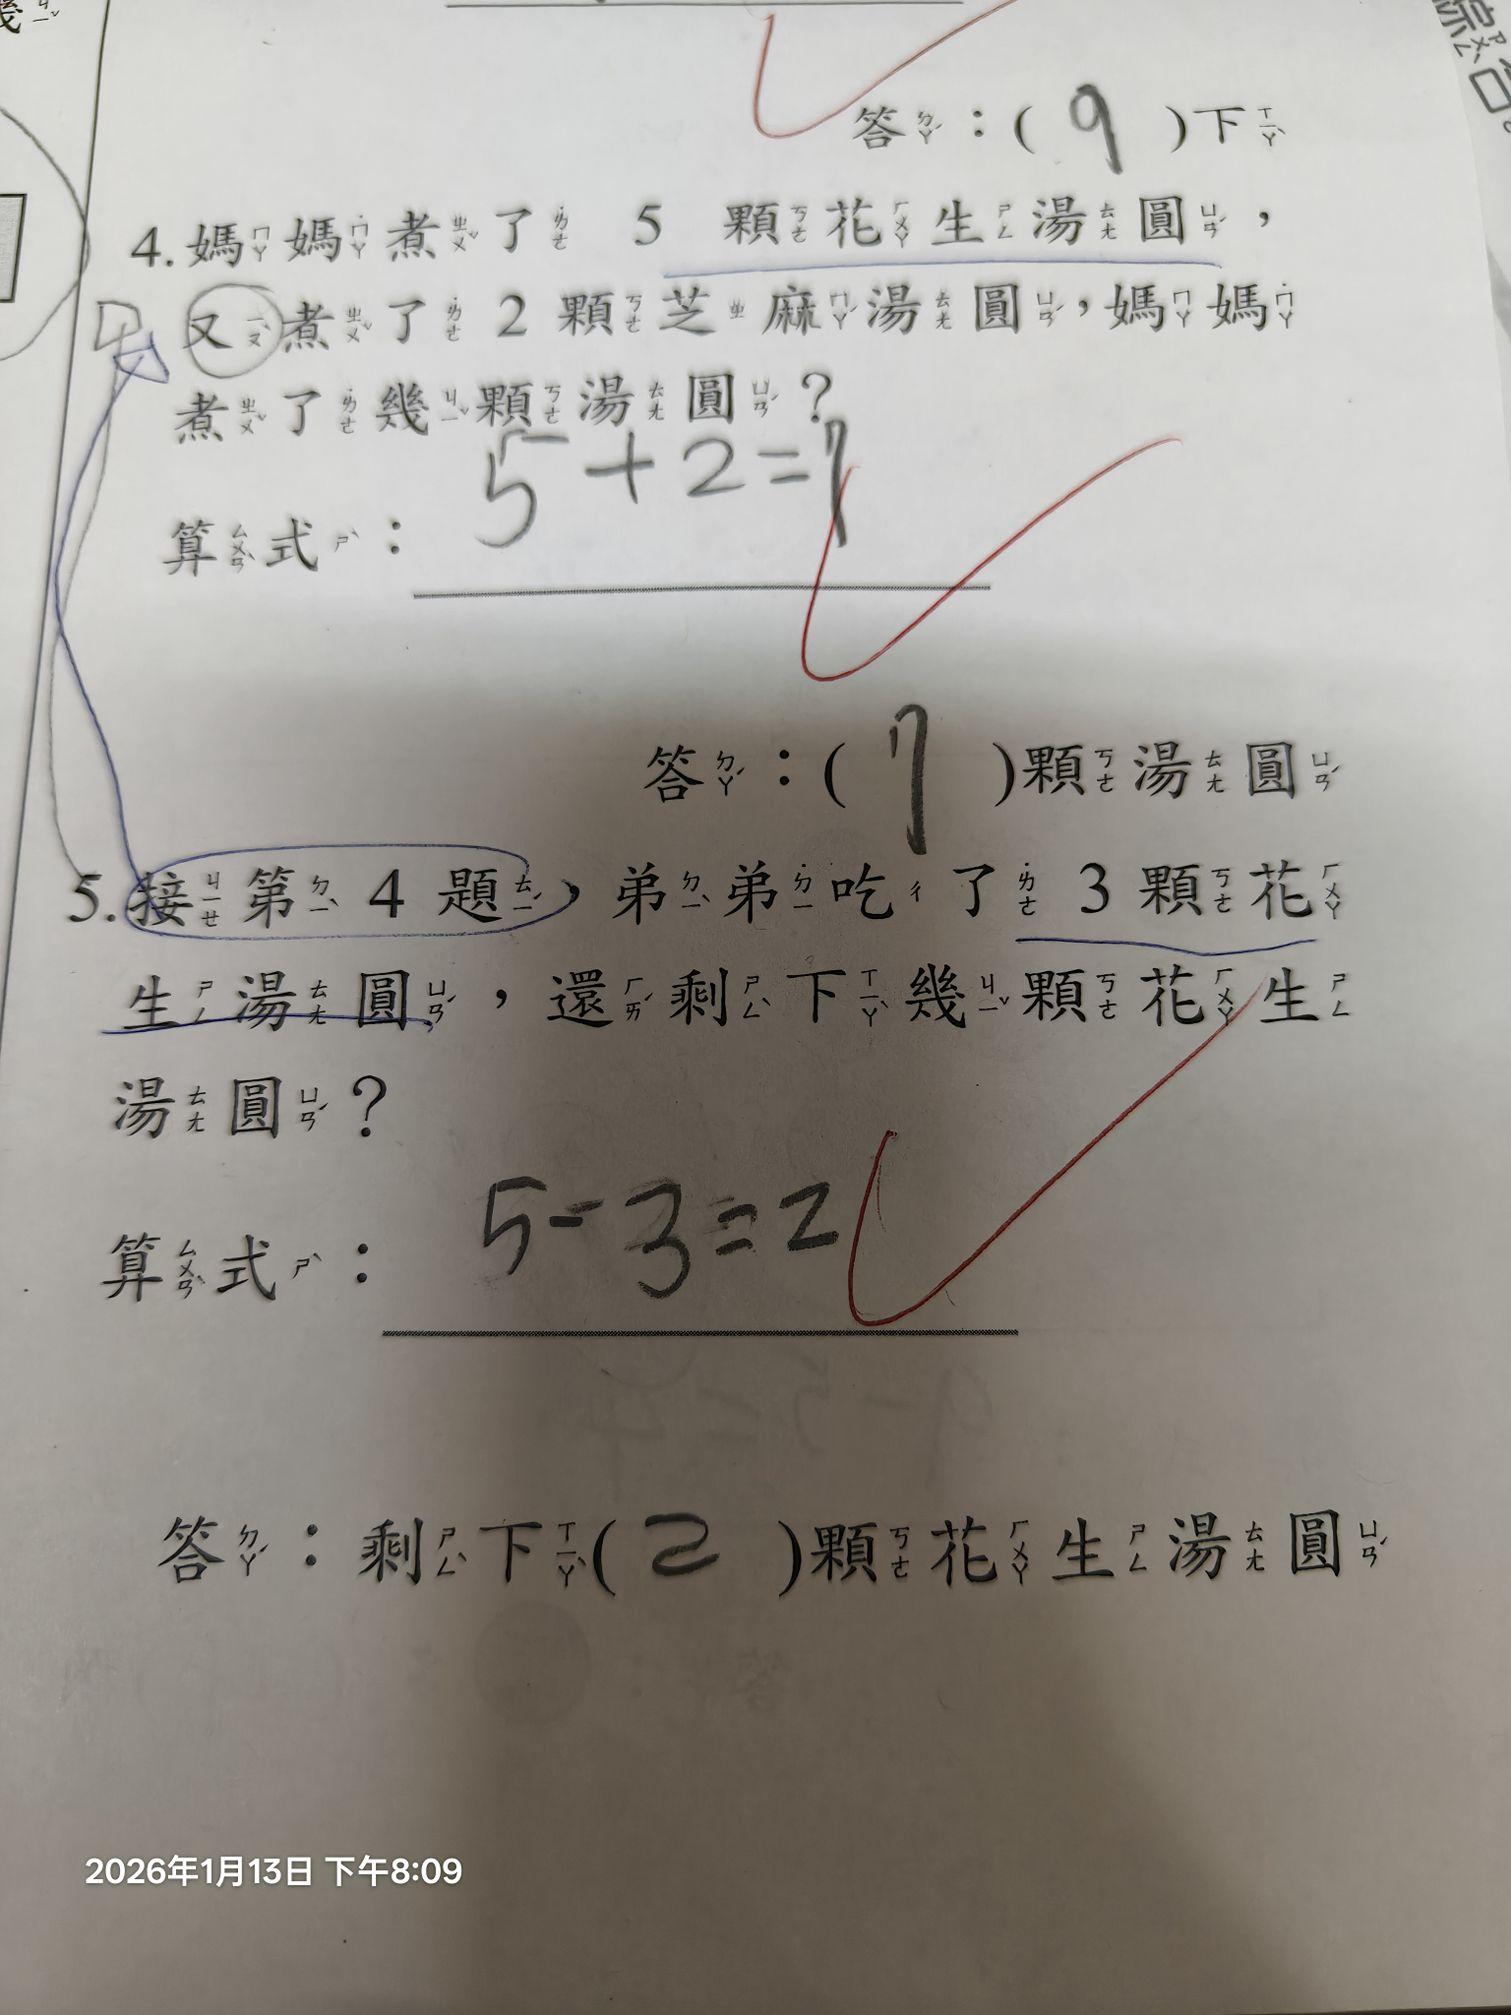 綜合
答：( 9 )下
4. 媽媽煮了 5 顆花生湯圓，
又煮了 2 顆芝麻湯圓，媽媽
煮了幾顆湯圓？
算式： 5+2=7
答：( 7 )顆湯圓
5. 接第 4 題，弟弟吃了 3 顆花
生湯圓，還剩下幾顆花生
湯圓？
算式： 5-3=2
答：剩下( 2 )顆花生湯圓
2026年1月13日 下午8:09